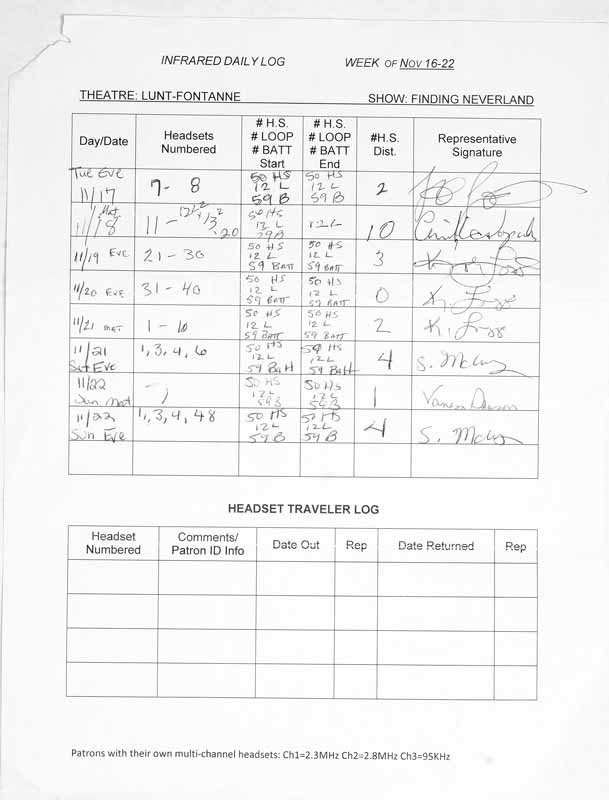 INFRARED DAILY LOG WEEK OF NOV 16-22
THEATRE: LUNT-FONTANNE SHOW: FINDING NEVERLAND
Day/Date Headsets Numbered # H.S. # LOOP # BATT Start # H.S. # LOOP # BATT End #H.S. Dist. Representative Signature
Tue Eve 11/17 7- 8 50 HS 12 L 59 B 50 HS 12 L 59 B 2
Mat. 11/18 11 - 20 50 HS 12 L 59B 12L 10
11/19 EVE 21-30 50 HS 12 L 59 BATT 50 HS 12 L 59 BATT 3
11/20 EVE 31-40 50 HS 12 L 59 BATT 50 HS 12 L 59 BATT 0
11/21 MAT 1-10 50 HS 12 L 59 BATT 50 HS 12 L 59 BATT 2
11/21 Sat Eve 1, 3, 4, 6 50 HS 12L 59 Batt 50 HS 12L 59 Batt 4 S.
11/22 Sun Mat 50 HS 12L 59B 50HS 12L 59B 1 Vanessa Dawson
11/22 Sun Eve 1, 3, 4, 48 50 HS 12L 59 B 50 HS 12L 59 B 4 S.
HEADSET TRAVELER LOG
Headset Numbered Comments/ Patron ID Info Date Out Rep Date Returned Rep
Patrons with their own multi-channel headsets: Ch1=2.3MHz Ch2=2.8MHz Ch3=95KHz